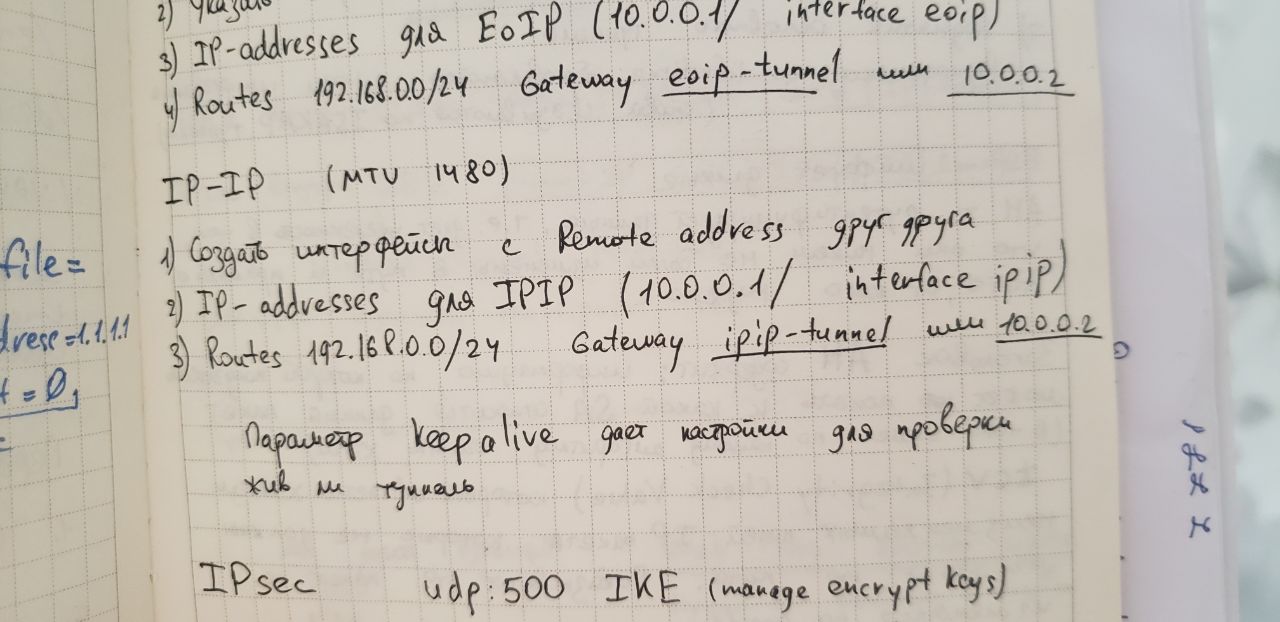 2) Указать
3) IP-addresses для EoIP (10.0.0.1/ interface eoip)
4) Routes 192.168.0.0/24 Gateway eoip-tunnel или 10.0.0.2
IP-IP (MTU 1480)
1) Создать интерфейсы с Remote address друг друга
2) IP-addresses для IPIP (10.0.0.1/ interface ipip)
3) Routes 192.168.0.0/24 Gateway ipip-tunnel или 10.0.0.2
Параметр keepalive дает настройки для проверки
жив ли туннель
IPsec udp:500 IKE (manage encrypt keys)
file=
dress=1.1.1.1
t=0,